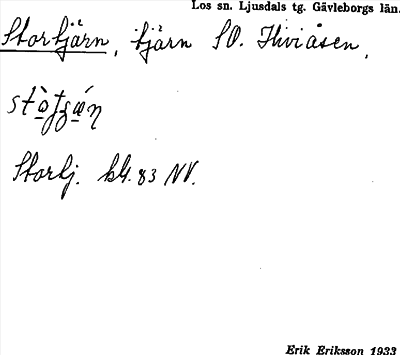 Los sn. Ljusdals tg. Gävleborgs län.
Stortjärn, tjärn SO. Hiviåsen,
Stortj. bl. 83 NV.
Erik Eriksson 1933